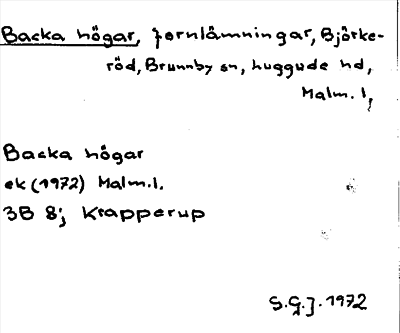 Backa högar, fornlämningar, Björke-
röd, Brunnby sn, Luggude hd,
Malm. l,
Backa högar
ek (1972) Malm.l.
3B 8j Krapperup
S.G.J. 1972